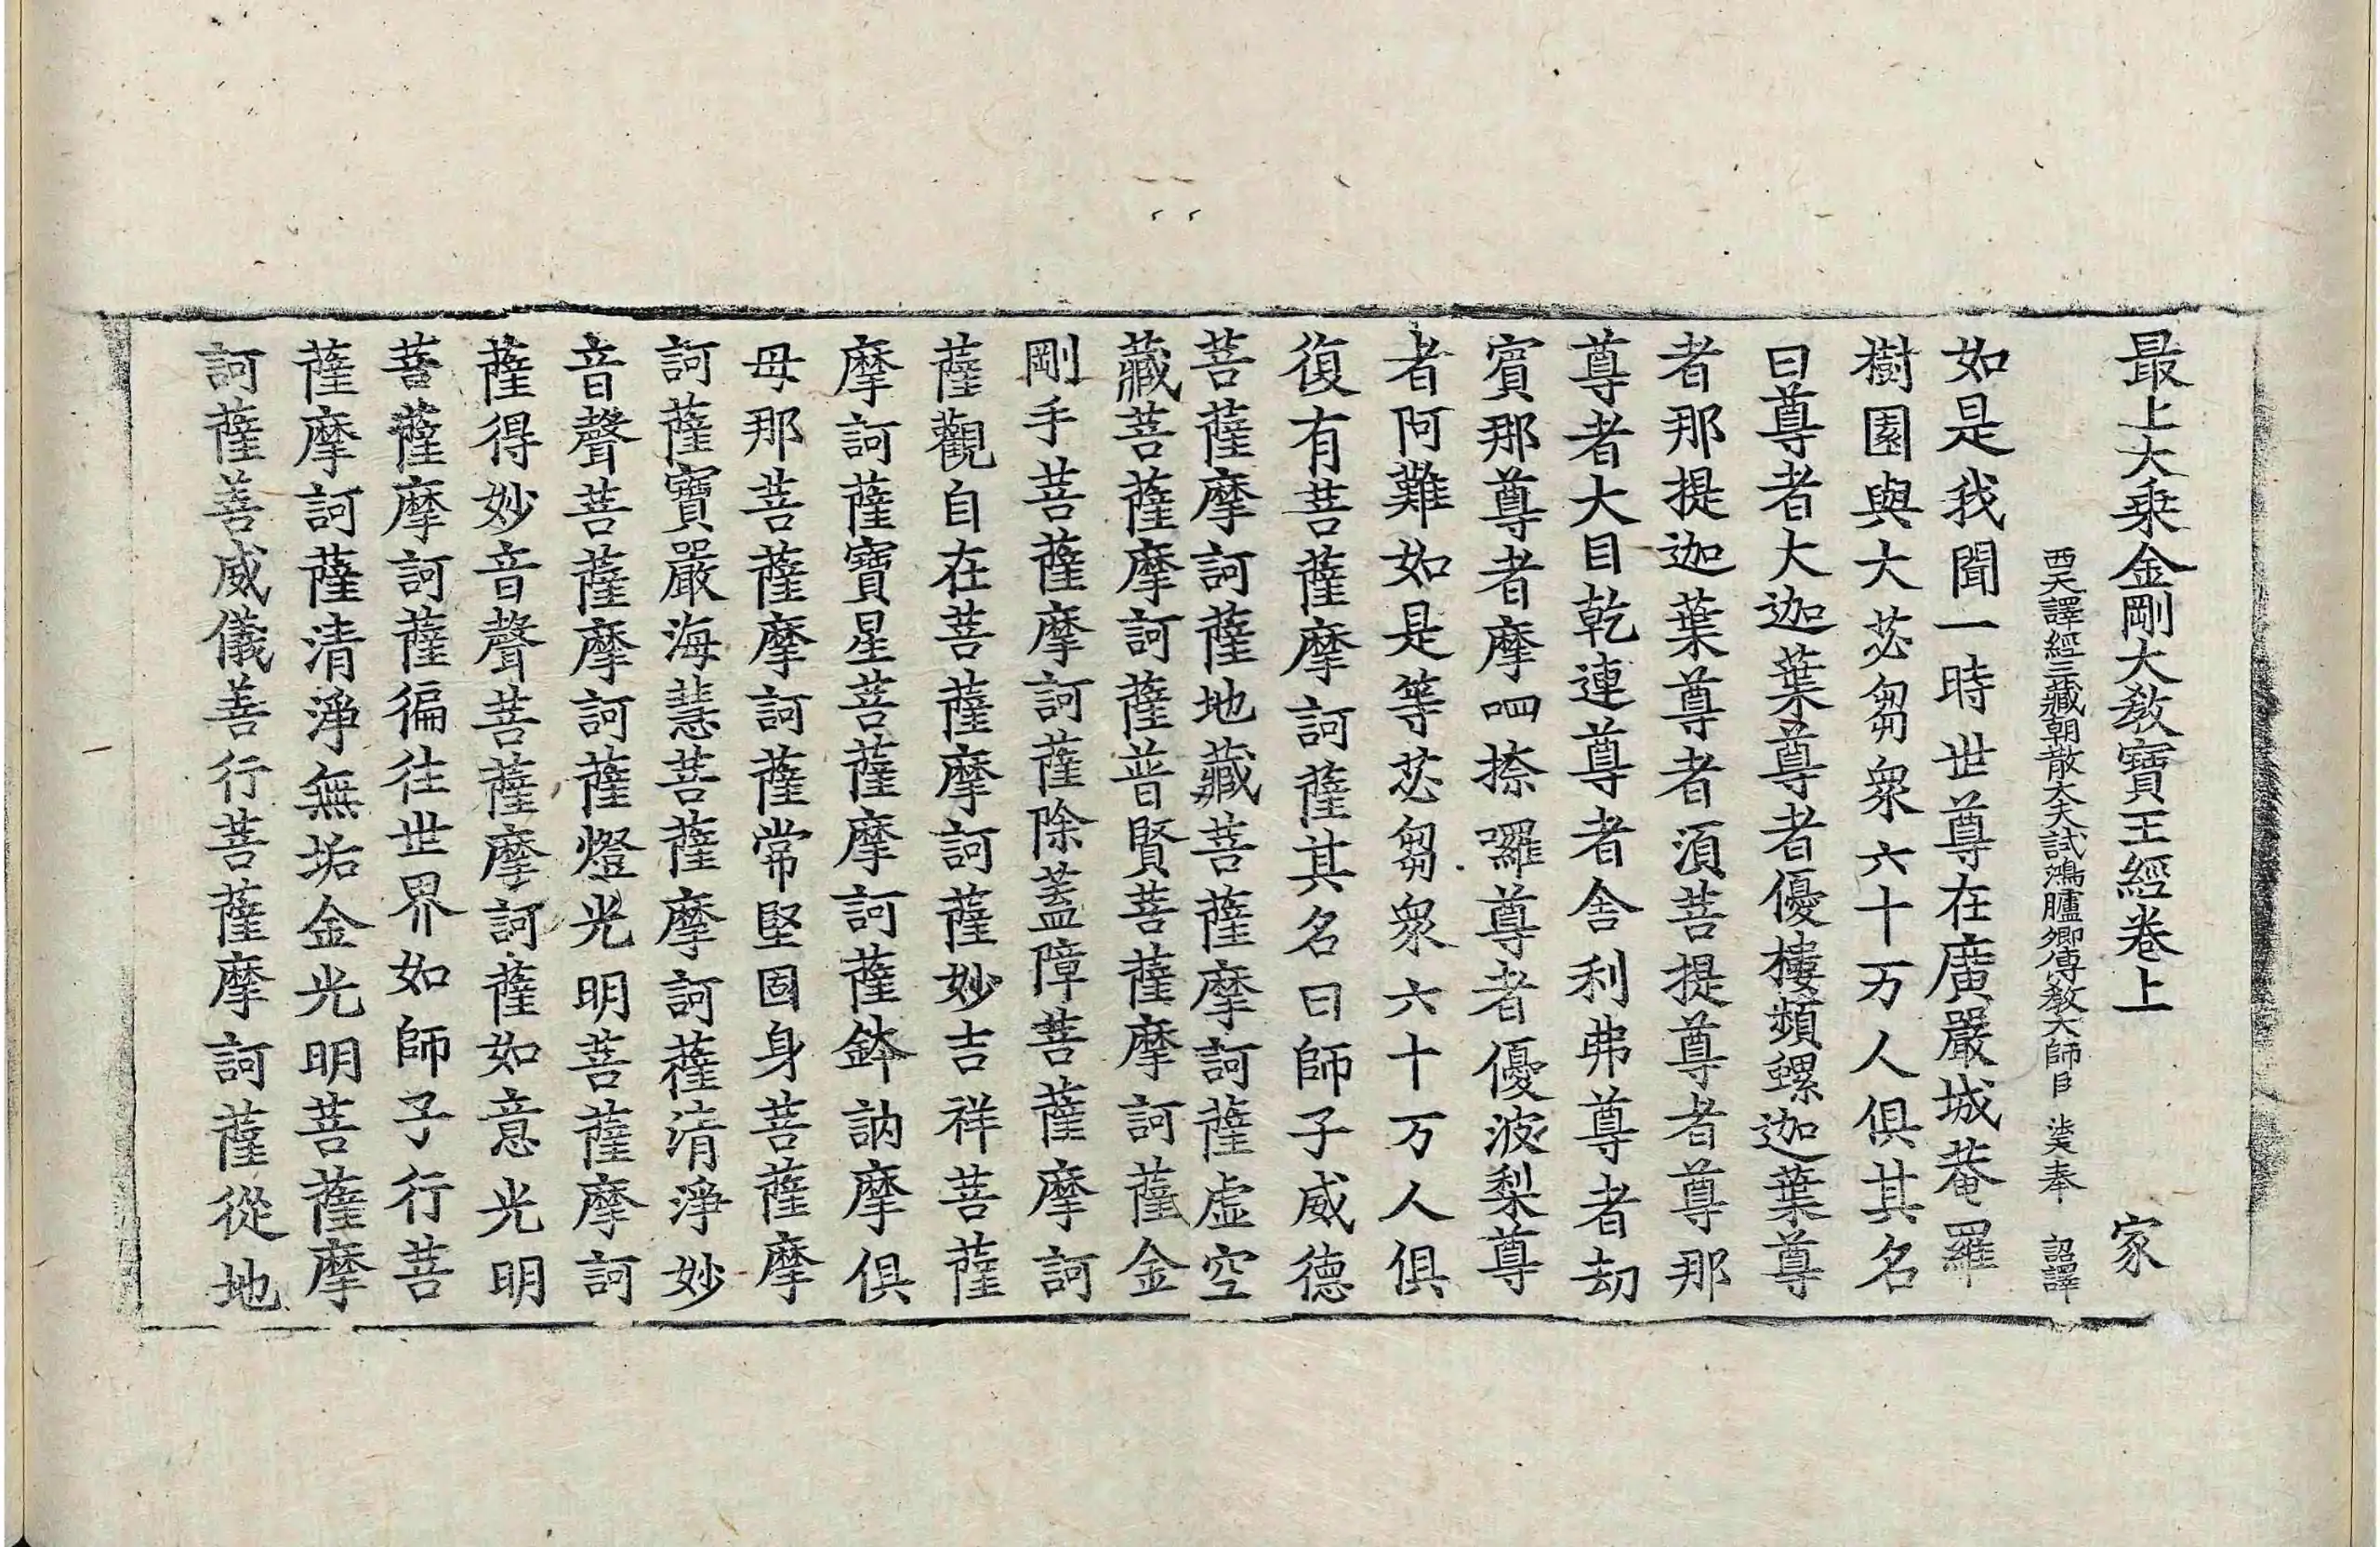 最上大乗金剛大敎寶王經卷上 家
西天譯經三藏朝散大夫試鴻臚卿傳敎大師臣 法天奉 詔譯
如是我聞一時世尊在廣嚴城菴羅
樹園與大苾芻衆六十万人俱其名
曰尊者大迦葉尊者優樓頻螺迦葉尊
者那提迦葉尊者湏菩提尊者尊那
尊者大目乾連尊者舎利弗尊者劫
賓那尊者摩呬捺囉尊者優波梨尊
者阿難如是等苾芻衆六十万人俱
復有菩薩摩訶薩其名曰師子威德
菩薩摩訶薩地藏菩薩摩訶薩虛空
藏菩薩摩訶薩普賢菩薩摩訶薩金
剛手菩薩摩訶薩除蓋障菩薩摩訶
薩觀自在菩薩摩訶薩妙吉祥菩薩
摩訶薩寶星菩薩摩訶薩鉢訥摩俱
母那菩薩摩訶薩常堅固身菩薩摩
訶薩寶嚴海慧菩薩摩訶薩清淨妙
音聲菩薩摩訶薩燈光明菩薩摩訶
薩得妙音聲菩薩摩訶薩如意光明
菩薩摩訶薩徧往世界如師子行菩
薩摩訶薩清淨無垢金光明菩薩摩
訶薩善威儀善行菩薩摩訶薩從地